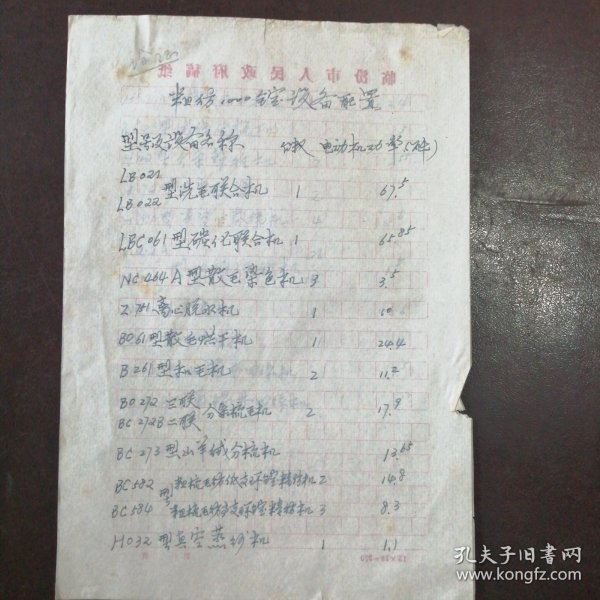 临汾市人民政府稿纸
粗纺1000锭设备配置
型号及设备名称 台数 电动机功率(瓩)
LB021
LB022 型洗毛联合机 1 67.5
LBC061型碳化联合机 1 65.85
NC464A型散毛染色机 3 3.5
Z751离心脱水机 1 10
B061型散毛烘干机 1 24.4
B261型和毛机 2 11.2
BC272 三联
BC272B 二联 分条梳毛机 2 17.9
BC273型山羊绒分梳机 13.65
BC582 型 粗梳毛纺低支环锭精纺机 2 14.8
BC584 粗梳毛纺支环锭精纺机 3 8.3
H032型真空蒸纱机 1 1.1
孔夫子旧书网
www.kongfz.com